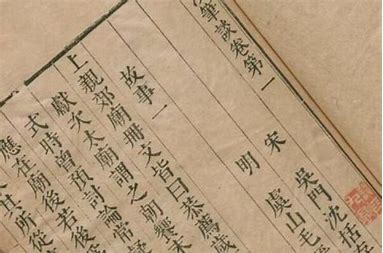 筆談卷第一
宋 吳門沈括
明 虞山毛
故事一
上親郊廟冊文皆曰恭薦歲
獻次太廟謂之朝饗末
式時曾預討論常疑
應在廟後若後
其所從